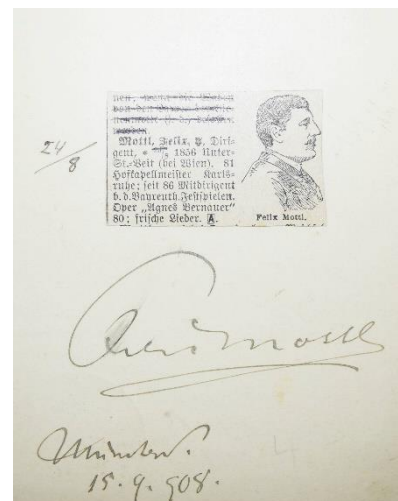 24/8
Mottl, Felix, D. Diri=
gent, * 1856 Unter=
St.=Veit (bei Wien). 81
Hofkapellmeister Karls=
ruhe; seit 86 Mitdirigent
b. d. Bayreuth. Festspielen.
Oper „Agnes Bernauer“
80; frische Lieder. A.
Felix Mottl.
Felix Mottl
München.
15. 9. 908.